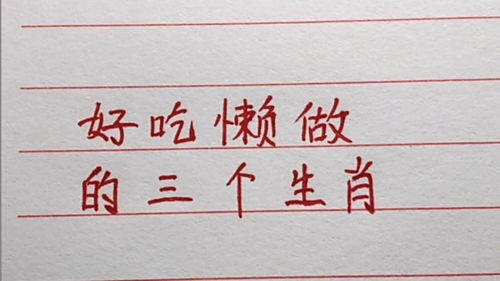 好吃懒做
的三个生肖